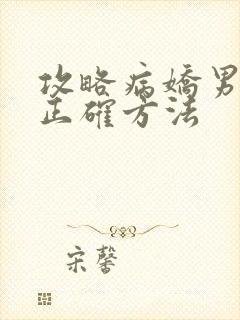 攻略病嬌男
正確方法
宋馨